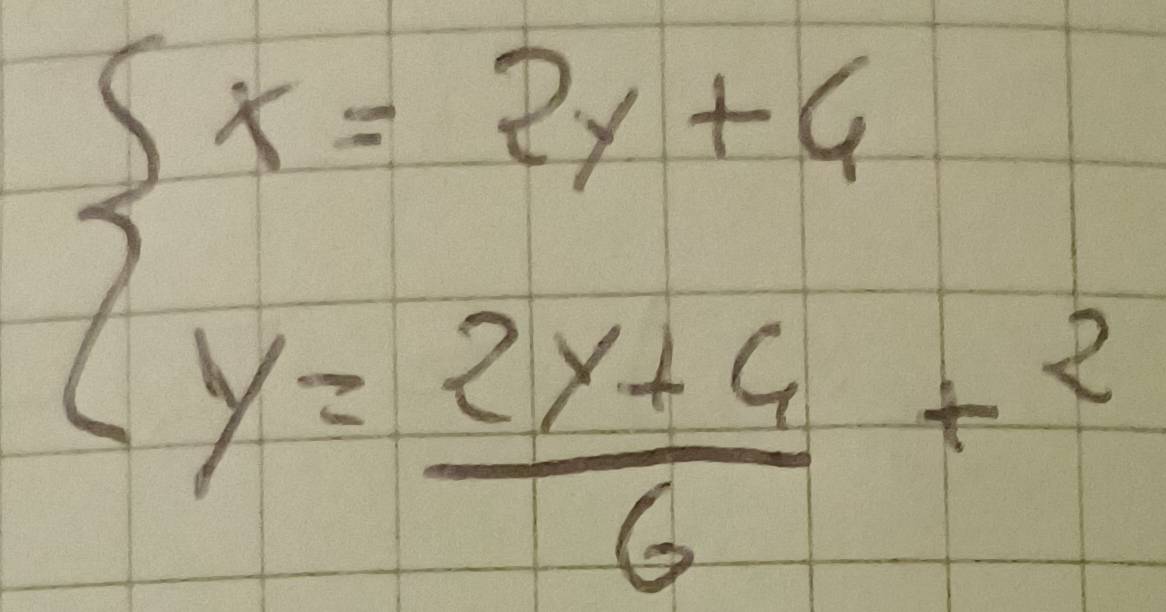 { x = 2y + 4
y = (2y + 4)/6 + 2